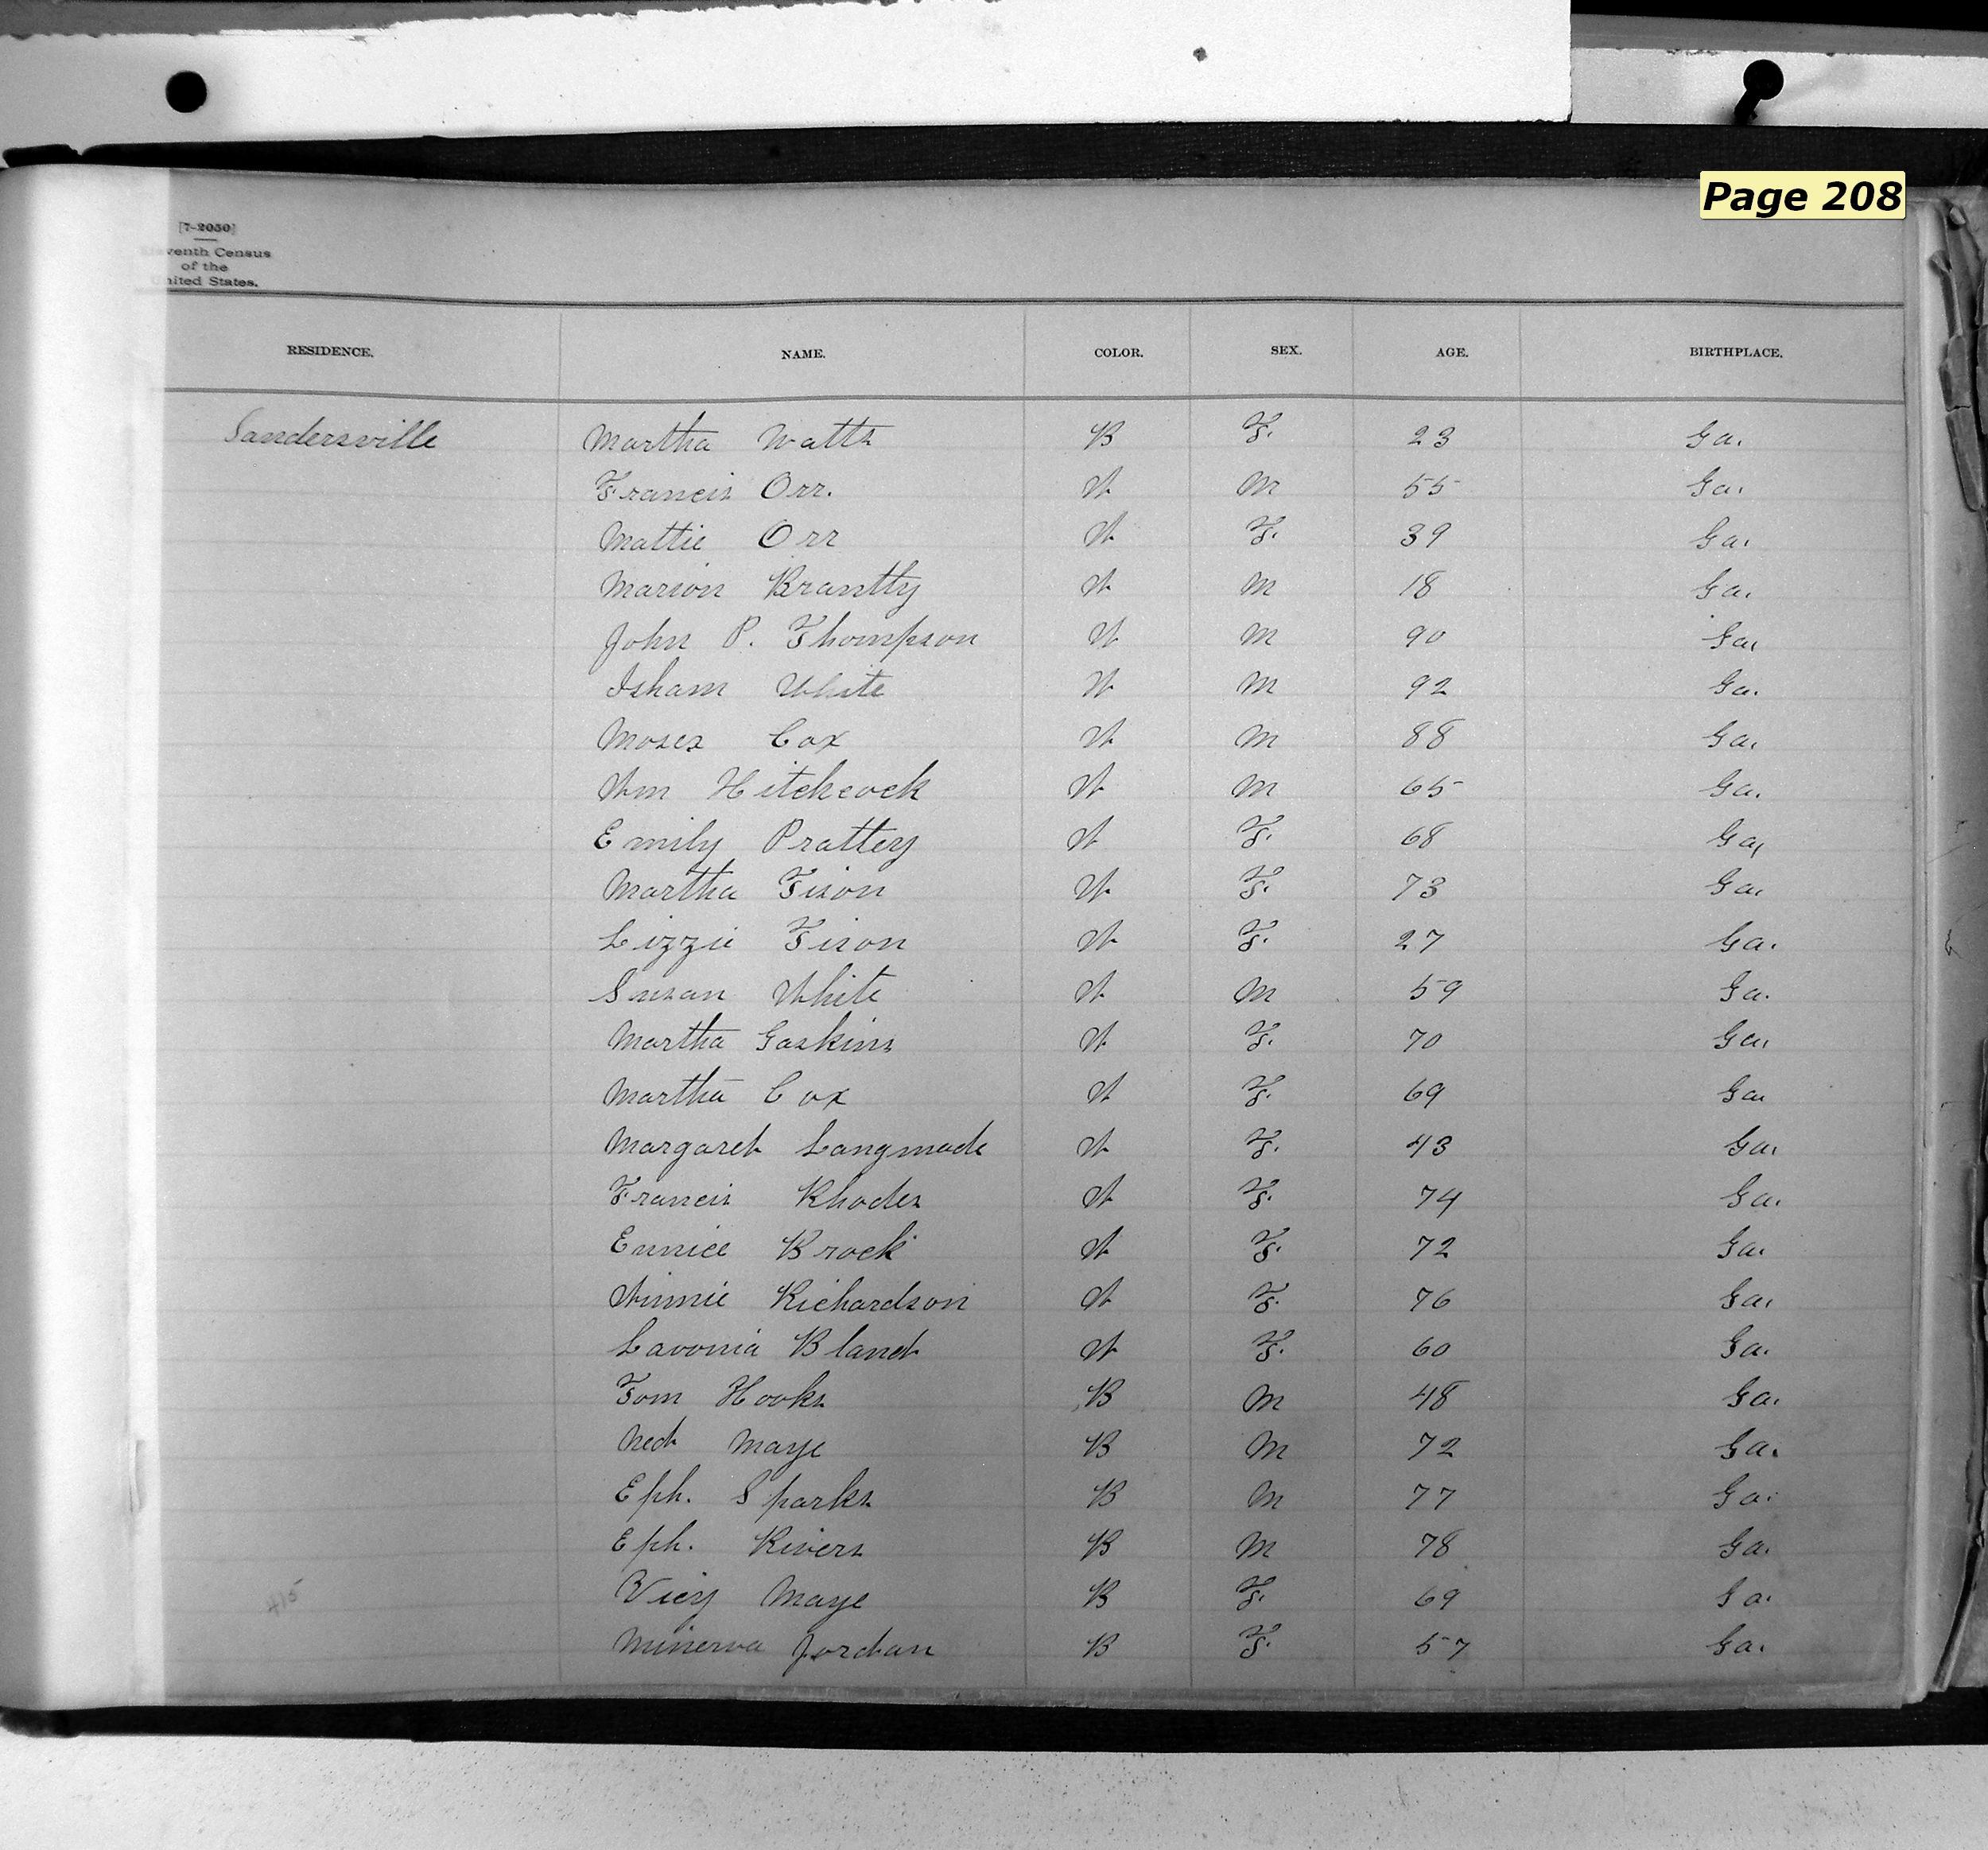 Page 208
[7-2050]
Eleventh Census
of the
United States.
RESIDENCE. NAME. COLOR. SEX. AGE. BIRTHPLACE.
Sandersville Martha Watts B F. 23 Ga.
Francis Orr. W M 55 Ga.
Mattie Orr W F. 39 Ga.
Marion Brantly W M 18 Ga.
John P. Thompson W M 90 Ga.
Isham White W M 92 Ga.
Moses Cox W M 88 Ga.
Wm Hitchcock W M 65 Ga.
Emily Prattey W F. 68 Ga.
Martha Tison W F. 73 Ga.
Lizzie Tison W F. 27 Ga.
Susan White W M 59 Ga.
Martha Gaskins W F. 70 Ga.
Martha Cox W F. 69 Ga
Margaret Langmade W F. 43 Ga.
Francis Rhodes W F. 74 Ga.
Eunice Brock W F. 72 Ga.
Winnie Richardson W F. 76 Ga.
Lavonia Bland W F. 60 Ga.
Tom Hooks B M 48 Ga.
Ned Maye B M 72 Ga.
Eph. Sparks B M 77 Ga.
Eph. Rivers B M 78 Ga.
415 Vicy Maye B F. 69 Ga.
Minerva Jordan B F. 57 Ga.